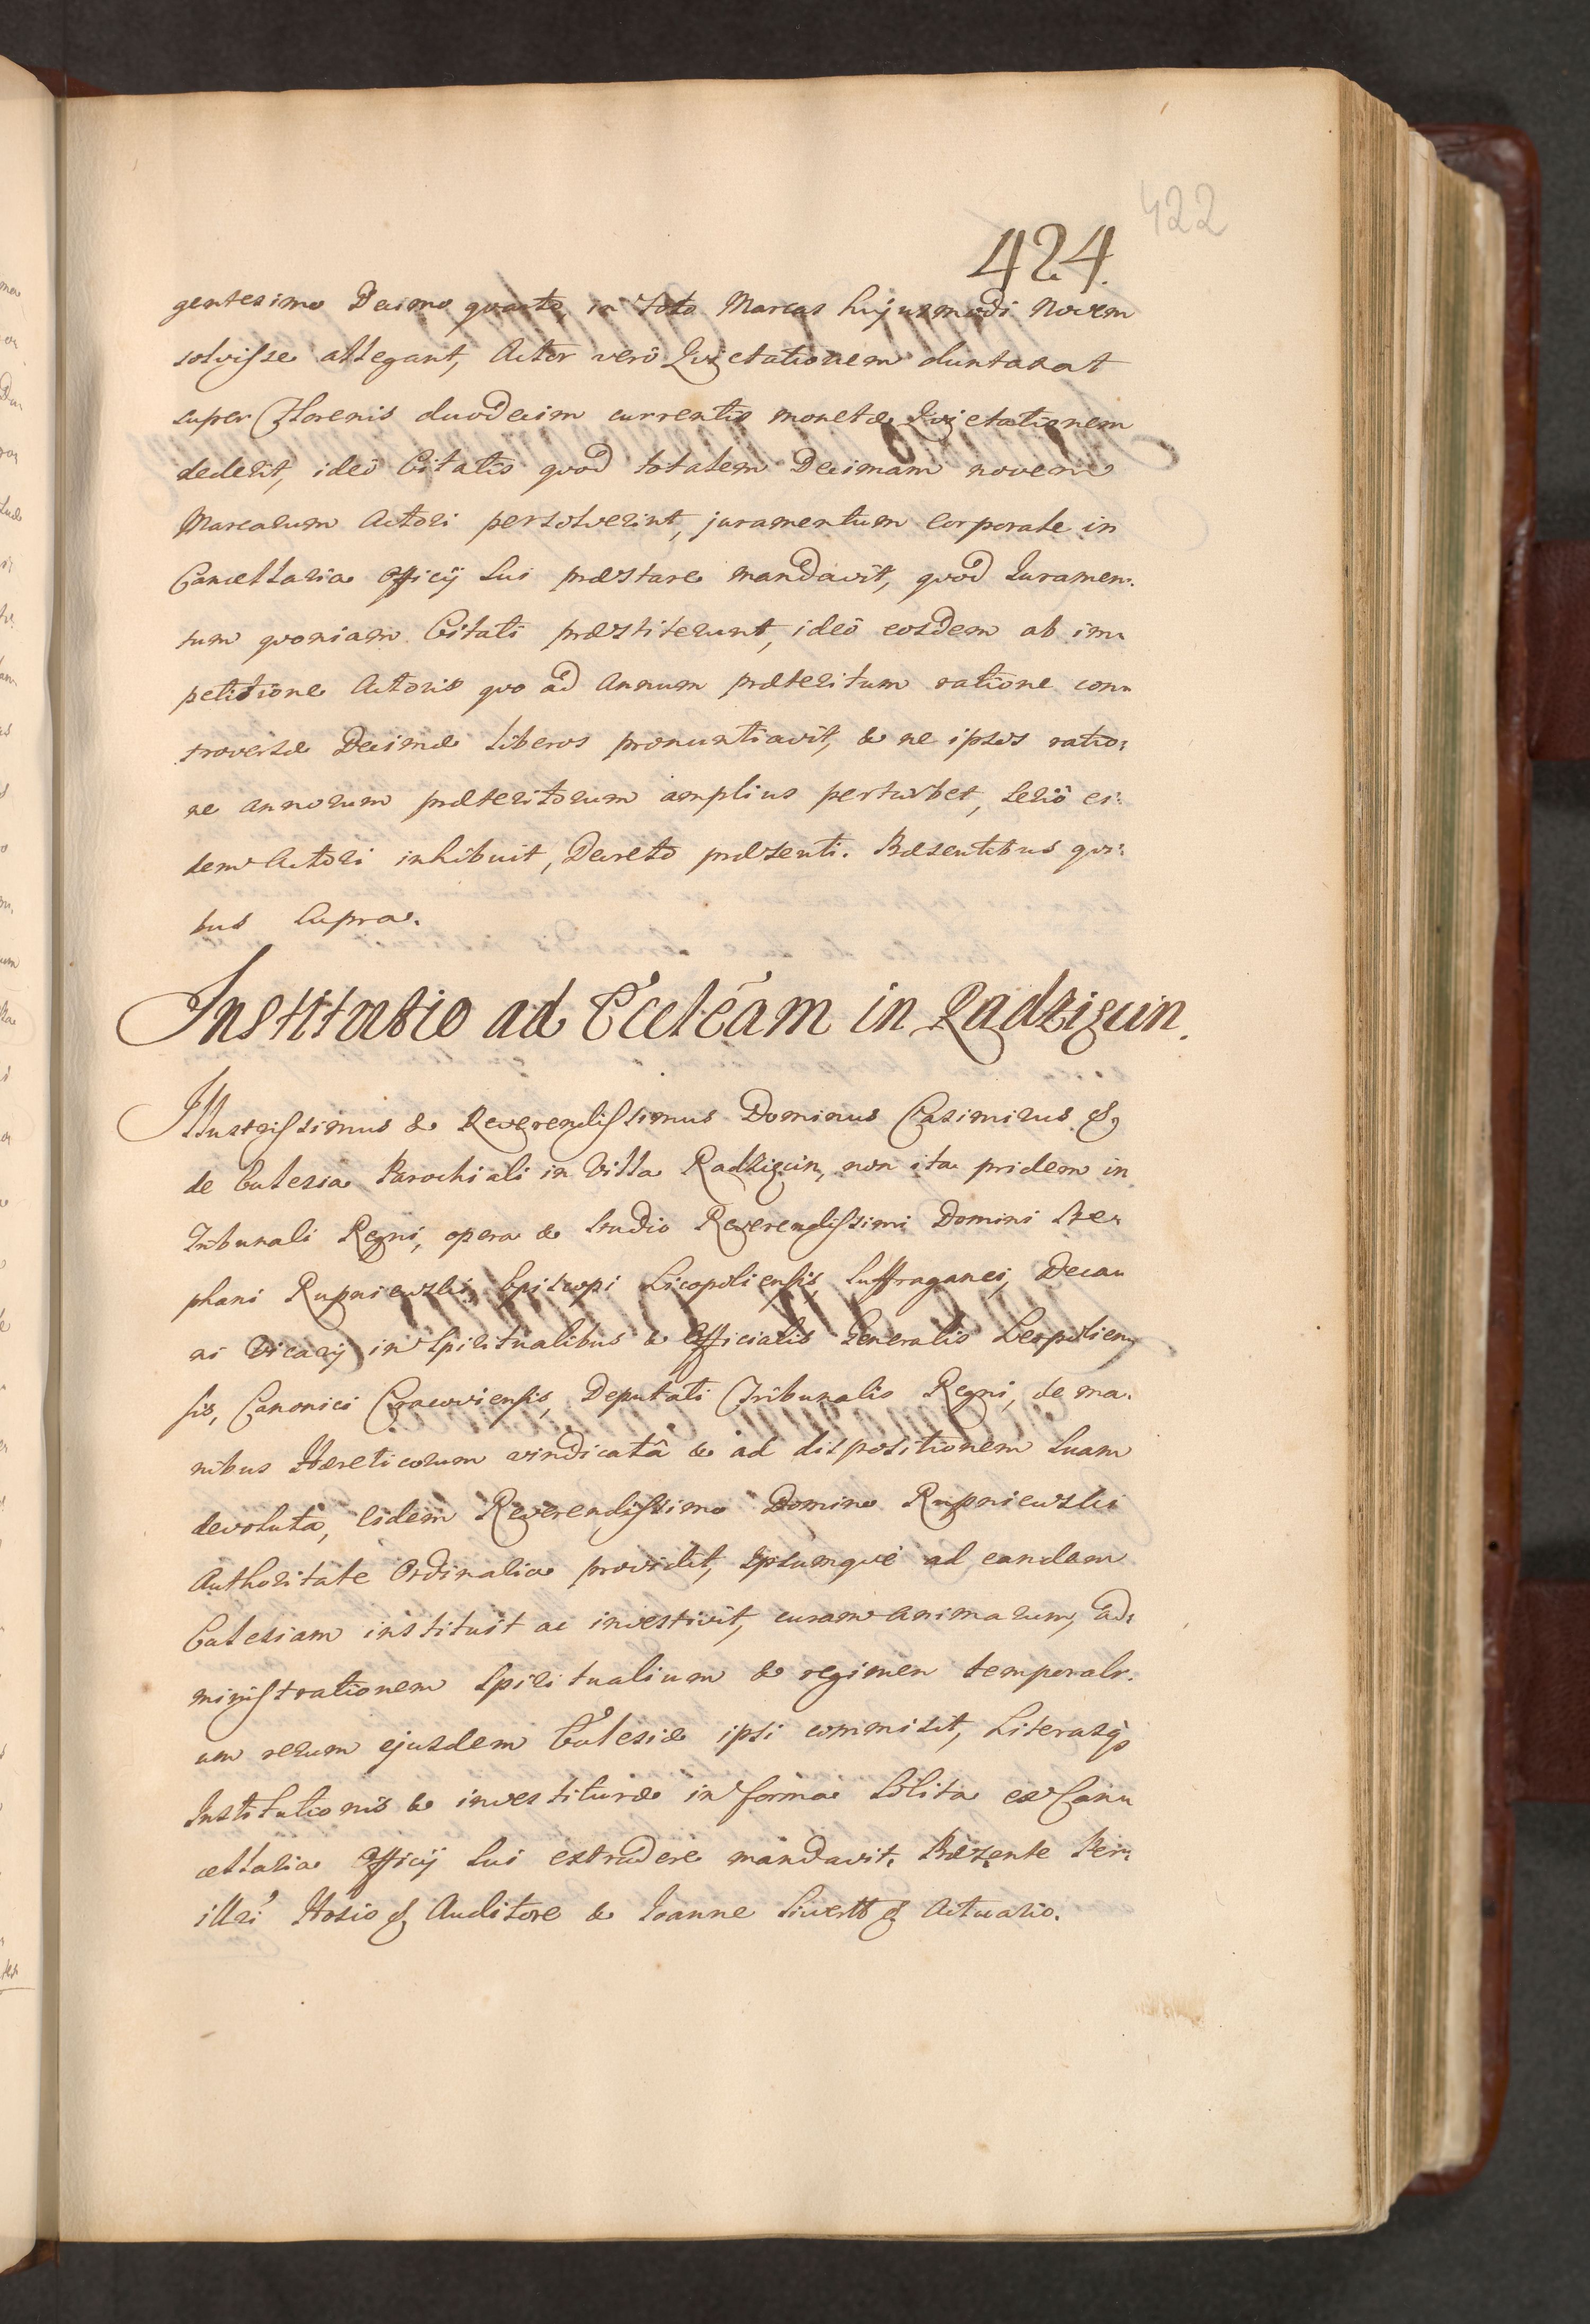 422
424.
gentesimo Decimo quarto, in Toto Marcas hujusmodi Novem
solvisse allegant, Actor verò Quietationem duntaxat
super Florenis duodecim currentis monetæ Quietationem
dederit, ideò Citatis quod totalem Decimam novem
Marcarum Actori persolverint, juramentum corporale in
Cancellaria Officij sui præstare mandavit, quod Juramen-
tum quoniam Citati præstiterunt, ideò eosdem ab im-
petitione Actoris quo ad Annum præteritum ratione con-
troversæ Decimæ liberos pronuntiavit, & ne ipsos ratio-
ne annorum præteritorum amplius perturbet, seriò ei-
dem Actori inhibuit, Decreto præsenti. Præsentibus qui-
bus supra.
Institutio ad Eccleãm in Radzigun.
Illustrissimus & Reverendissimus Dominus Casimirus &
de Ecclesia Parochiali in Villa Radzigun, non ita pridem in
Tribunali Regni, opera & studio Reverendissimi Domini Ste-
phani Rupniewski, Episcopi Licopoliensis, Suffraganei, Deca-
ni Vicarij in Spiritualibus & Officialis Generalis Leopolien-
sis, Canonici Cracoviensis, Deputati Tribunalis Regni, de ma-
nibus Hæreticorum vindicatâ & ad dispositionem suam
devoluta, eidem Reverendissimo Domino Rupniewski
Authoritate Ordinaria providit, Ipsumque ad eandem
Ecclesiam instituit ac investivit, curam animarum, ad-
ministrationem Spiritualium & regimen temporali-
um rerum ejusdem Ecclesiæ ipsi commisit, Literasq;
Institutionis & investituræ in forma solita ex Can-
cellaria Officij sui extradere mandavit. Præsente Per-
illri Hosio & Auditore & Joanne Siuertt & Actuario.